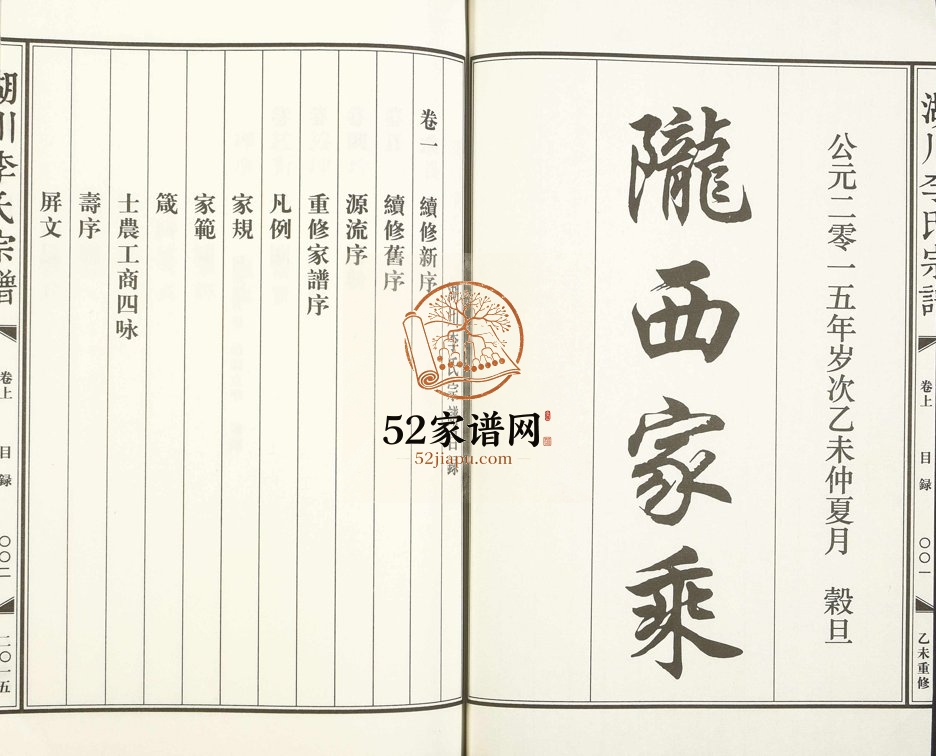 湖川李氏宗譜
卷上
目録
〇〇一
乙未重修
公元二零一五年岁次乙未仲夏月 穀旦
隴西家乘
湖川李氏宗譜目録
卷一
續修新序
續修舊序
源流序
重修家譜序
凡例
家規
家範
箴
士農工商四咏
壽序
屏文
湖川李氏宗譜
卷上
目録
〇〇二
二〇一五
52家谱网
52jiapu.com